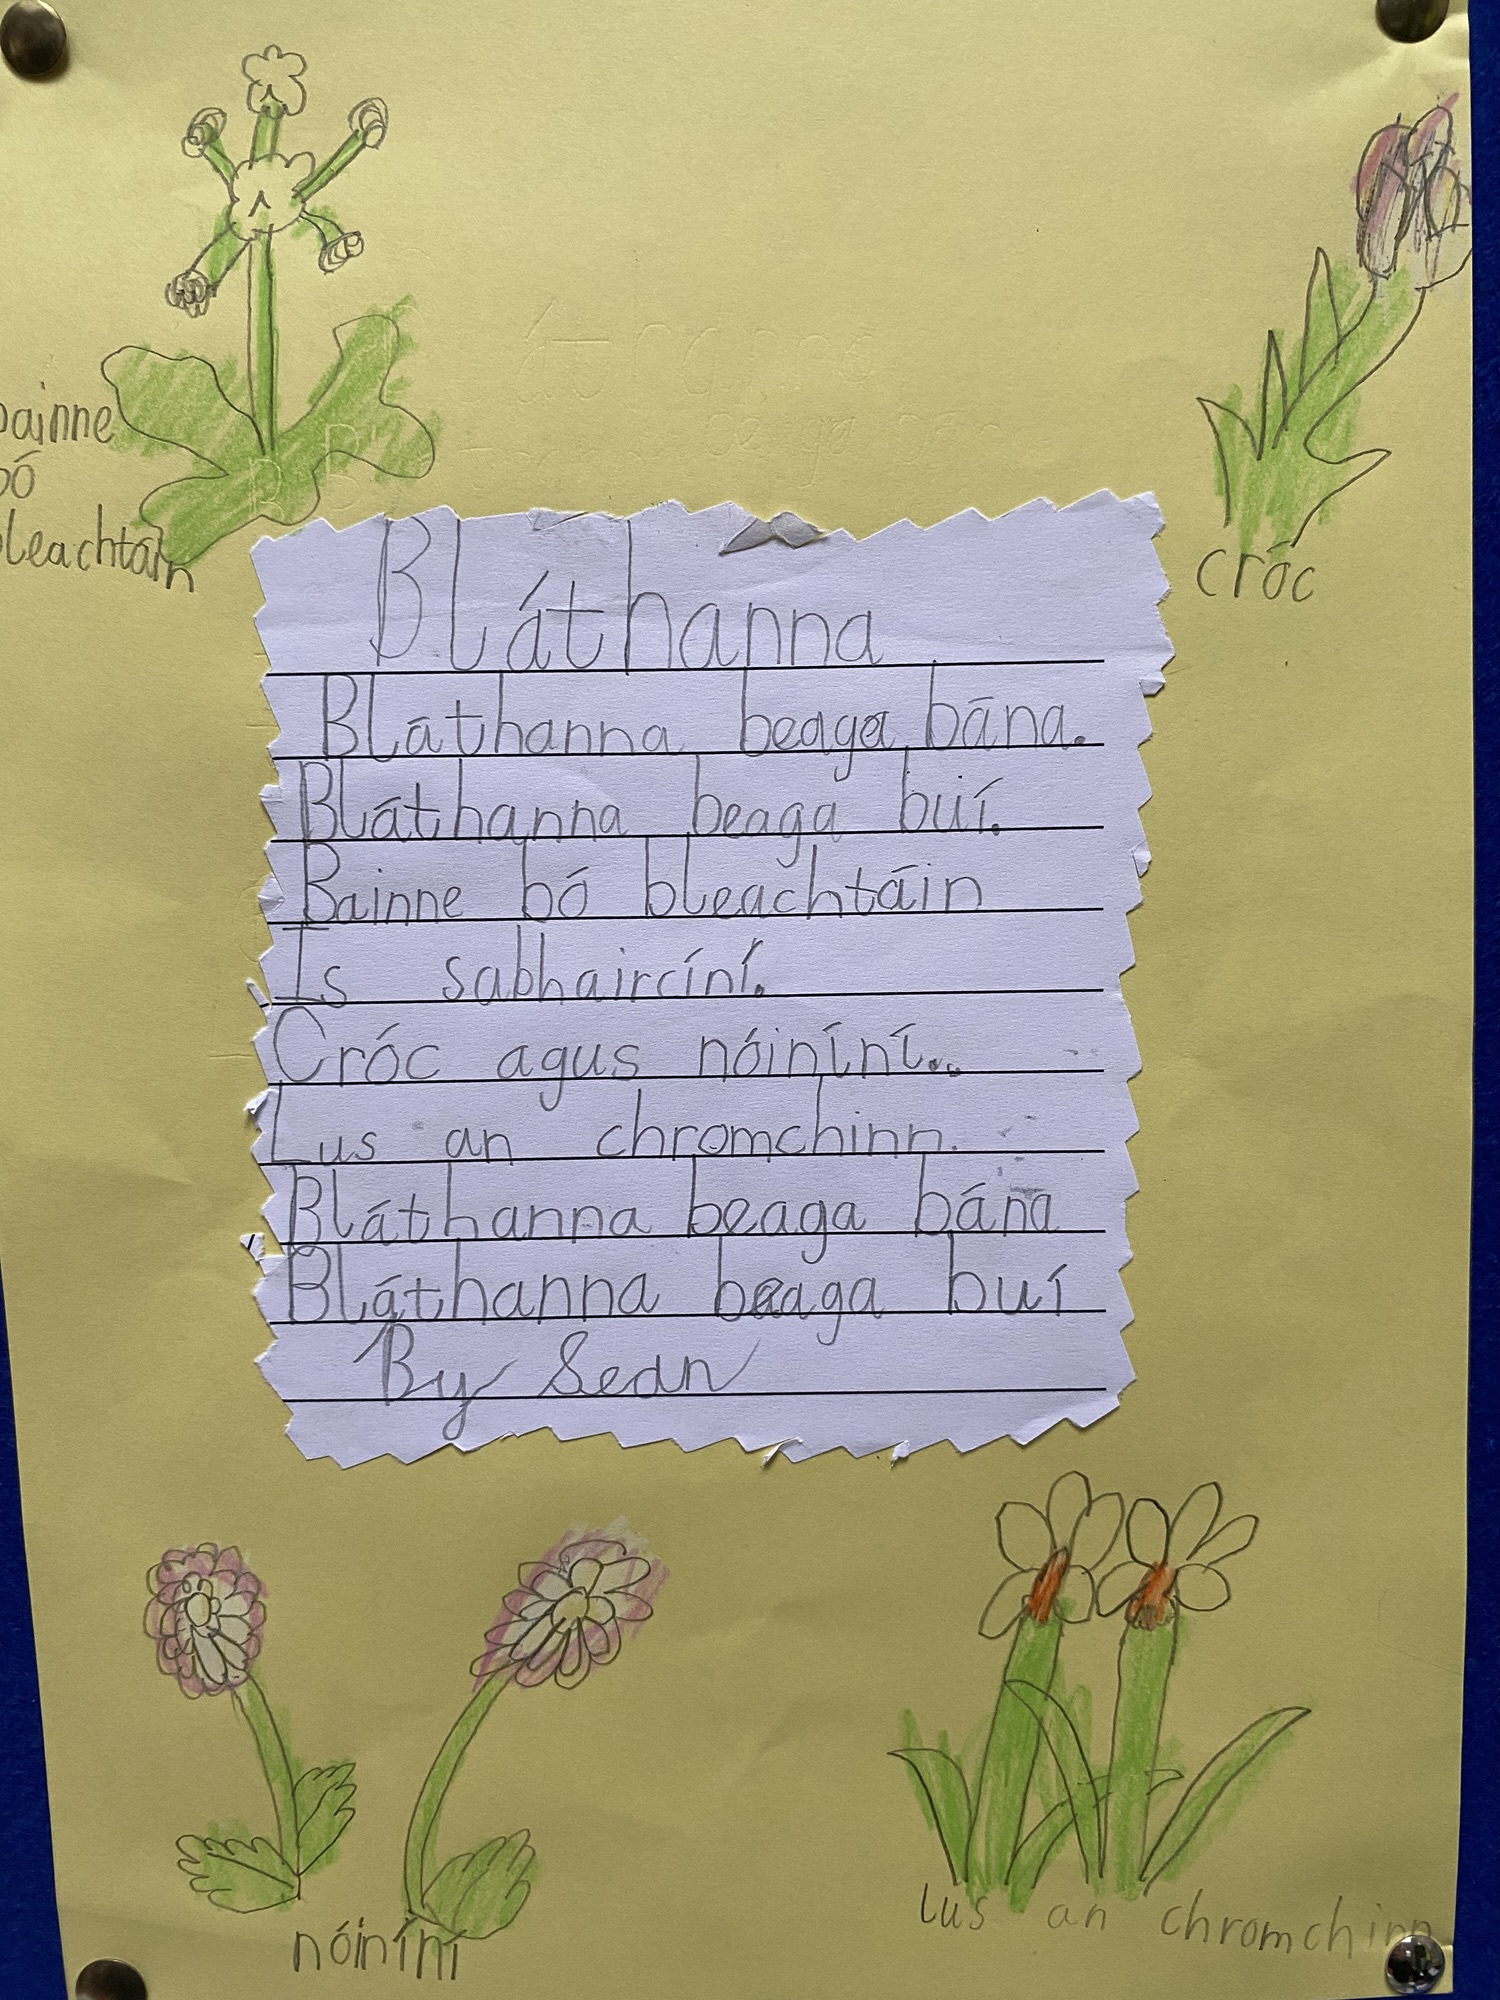 bainne
bó
bleachtáin
cróc
Bláthanna
Bláthanna beaga bána.
Bláthanna beaga buí.
Bainne bó bleachtáin
Is sabhaircíní.
Cróc agus nóiníní..
Lus an chromchinn.
Bláthanna beaga bána
Bláthanna beaga buí
By Sean
nóiníní
lus an chromchinn